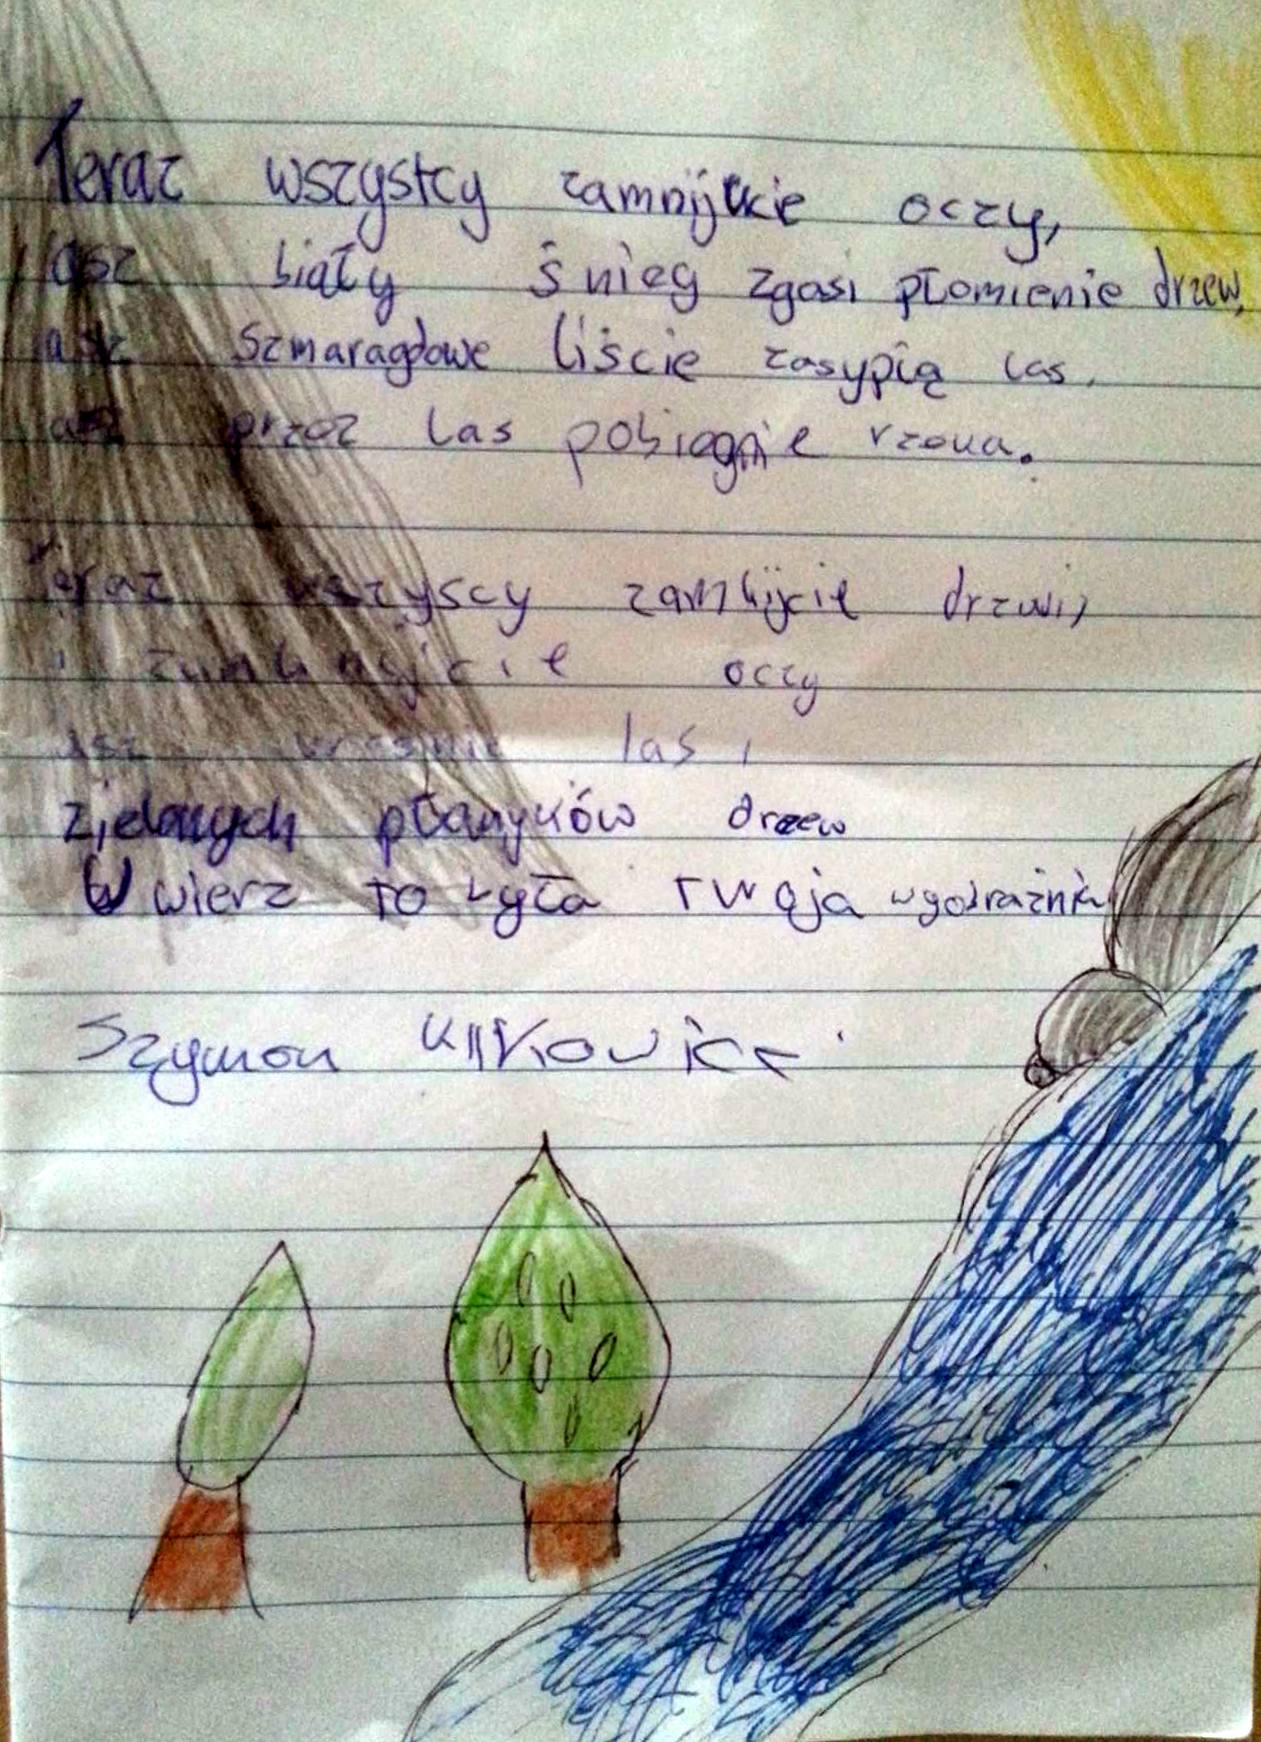 Teraz wszystcy zamnijkcie oczy,
asz biały śnieg zgasi płomienie drzew,
asz szmaragdowe liście zasypią las,
asz przez las pobiegnie rzeka.
Teraz wszyscy zamkijcie drzwi,
i zamknijcie oczy
asz las,
zielonych płamyków drzew
W wierz to była twoja wyobraźnia
Szymon